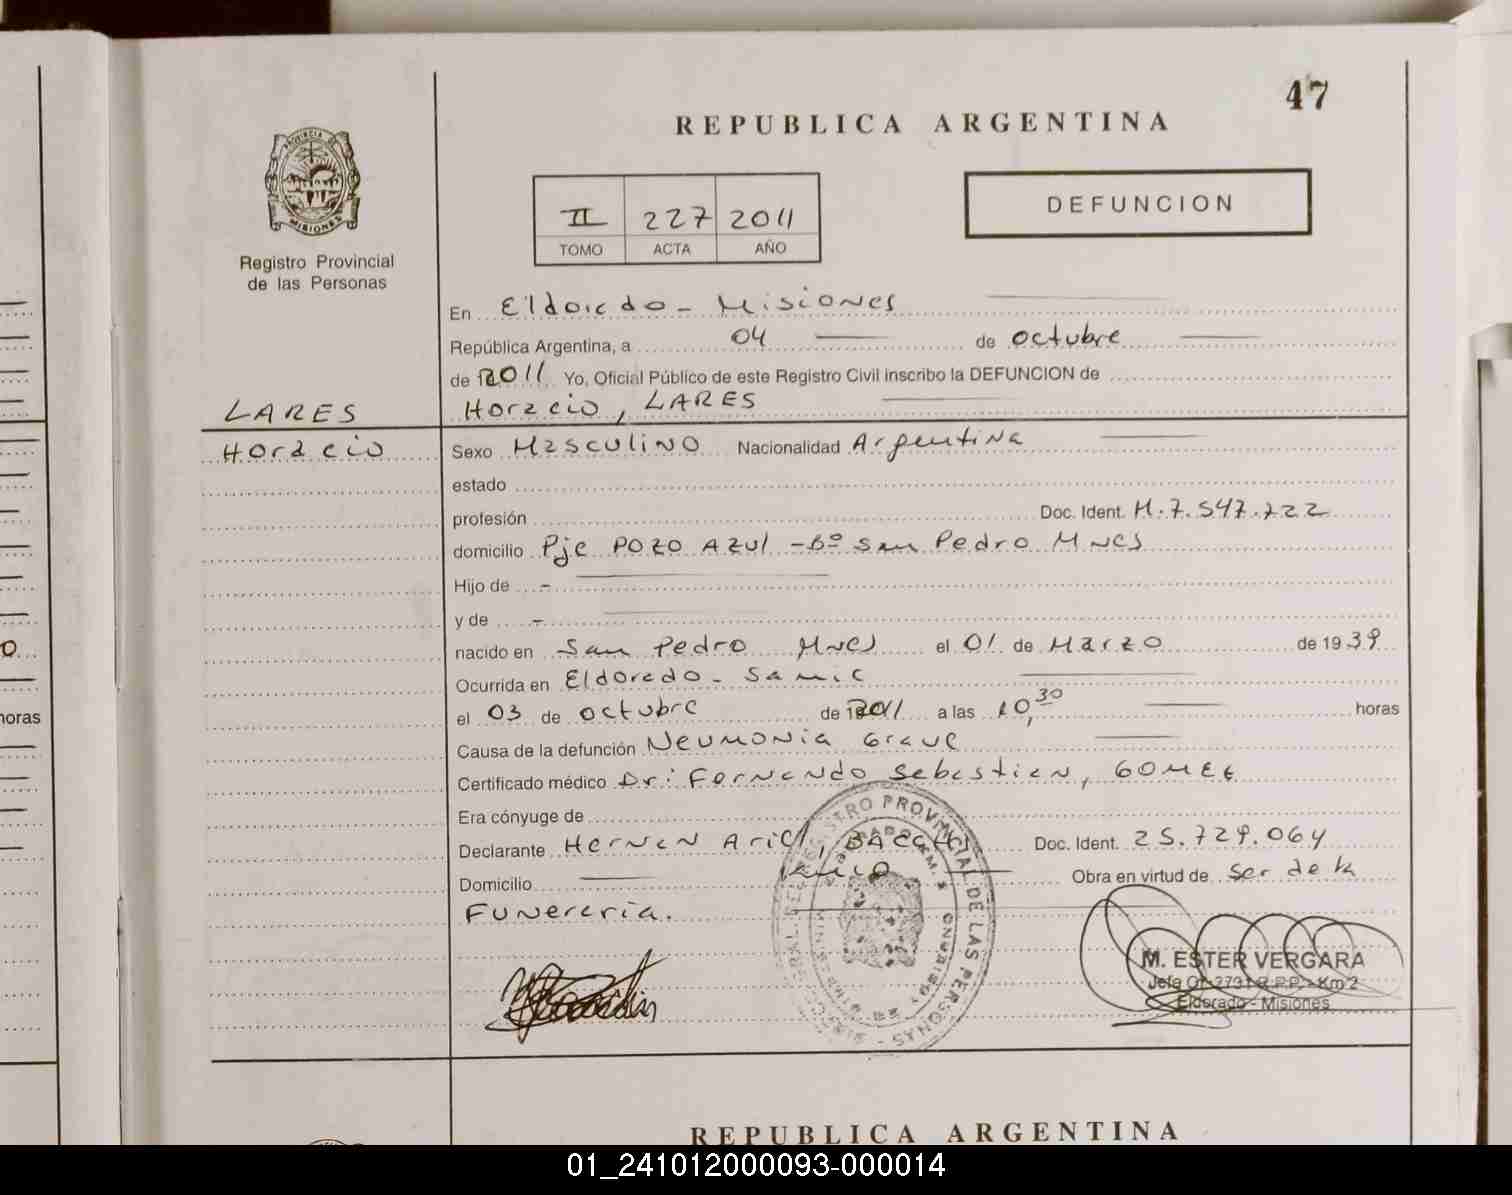 47
REPUBLICA ARGENTINA
PROVINCIA DE
MISIONES
Registro Provincial
de las Personas
II 227 2011
TOMO ACTA AÑO
DEFUNCION
En Eldorado - Misiones
República Argentina, a 04 de octubre
de 2011 Yo, Oficial Público de este Registro Civil inscribo la DEFUNCION de
LARES
Horacio, LARES
Horacio
Sexo Masculino Nacionalidad Argentina
estado
profesión Doc. Ident. M.7.547.722
domicilio Pje POZO AZUl - Bº San Pedro Mnes
Hijo de -
y de -
nacido en San Pedro Mnes el 01 de Marzo de 1939
Ocurrida en Eldorado - Samic
el 03 de octubre de 2011 a las 10,30 horas
Causa de la defunción Neumonia Grave
Certificado médico Dr: Fernando Sebastian, GOMEZ
Era cónyuge de
Declarante Hernan Ariel, Doc. Ident. 25.729.064
Domicilio Obra en virtud de ser de la
Funeraria.
REGISTRO PROVINCIAL DE LAS PERSONAS
M. ESTER VERGARA
Jefe Of. 2731 R.P.P. - Km 2
Eldorado - Misiones
REPUBLICA ARGENTINA
horas
01_241012000093-000014